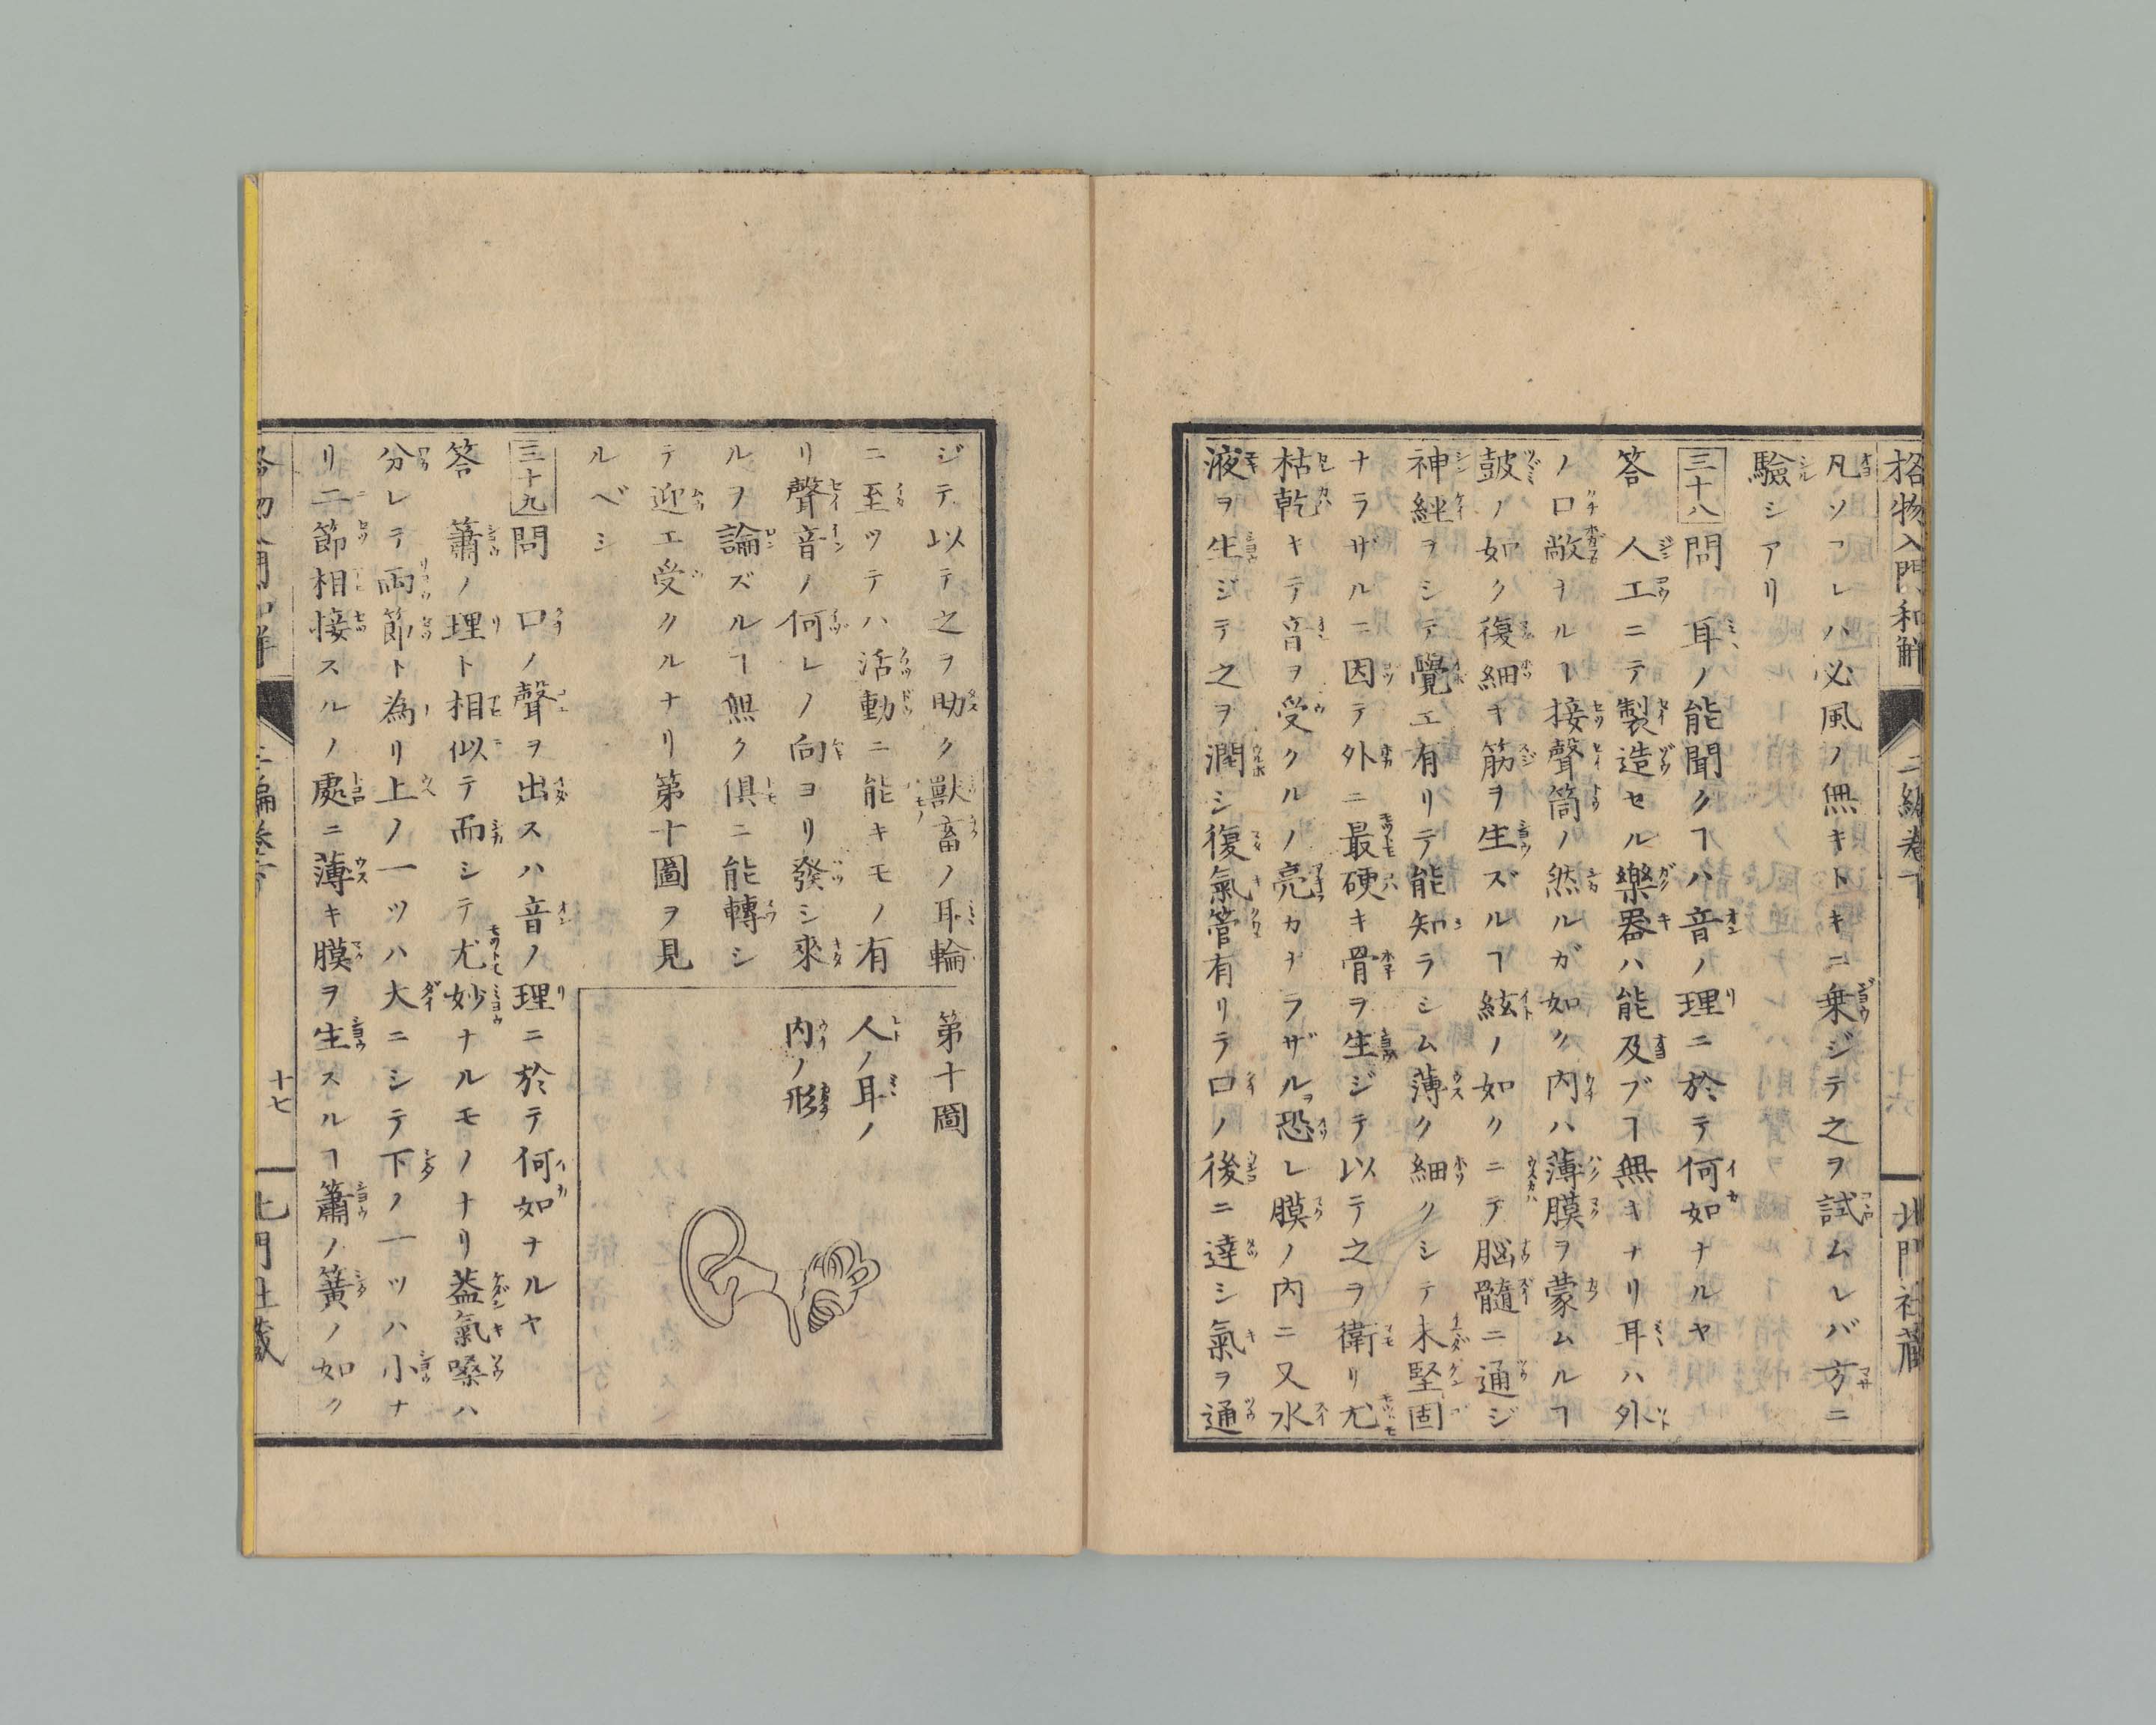 格物入門和解 二編巻下 北門社蔵
凡ソヿレハ必風ノ無キトキニ乗ジテ之ヲ試ムレバ方ニ
驗シアリ
三十八 問 耳ノ能聞クヿハ音ノ理ニ於テ何如ナルヤ
答 人工ニテ製造セル樂器ハ能及ブヿ無キナリ耳ハ外
ノ口敞ヲルヿ接聲筒ノ然ルガ如ク内ハ薄膜ヲ蒙ムルヿ
皷ノ如ク復細キ筋ヲ生ズルヿ絃ノ如クニテ脳髓ニ通ジ
神経ヲシテ覺エ有リテ能知ラシム薄ク細クシテ未堅固
ナラザルニ因テ外ニ最硬キ骨ヲ生ジテ以テ之ヲ衛リ尤
枯乾キテ音ヲ受クルノ亮カナラザルヲ恐レ膜ノ内ニ又水
液ヲ生ジテ之ヲ潤シ復氣管有リテ口ノ後ニ達シ氣ヲ通
ジテ以テ之ヲ助ク獸畜ノ耳輪
ニ至ツテハ活動ニ能キモノ有
リ聲音ノ何レノ向ヨリ發シ來
ルヲ論ズルヿ無ク倶ニ能轉シ
テ迎エ受クルナリ第十圖ヲ見
ルベシ
第十圖
人ノ耳ノ
内ノ形
三十九 問 口ノ聲ヲ出スハ音ノ理ニ於テ何如ナルヤ
答 簫ノ理ト相似テ而シテ尤妙ナルモノナリ蓋氣嗓ハ
分レテ両節ト為リ上ノ一ツハ大ニシテ下ノ一ツハ小ナ
リ二節相接スルノ處ニ薄キ膜ヲ生スルヿ簫ノ簧ノ如ク
十七